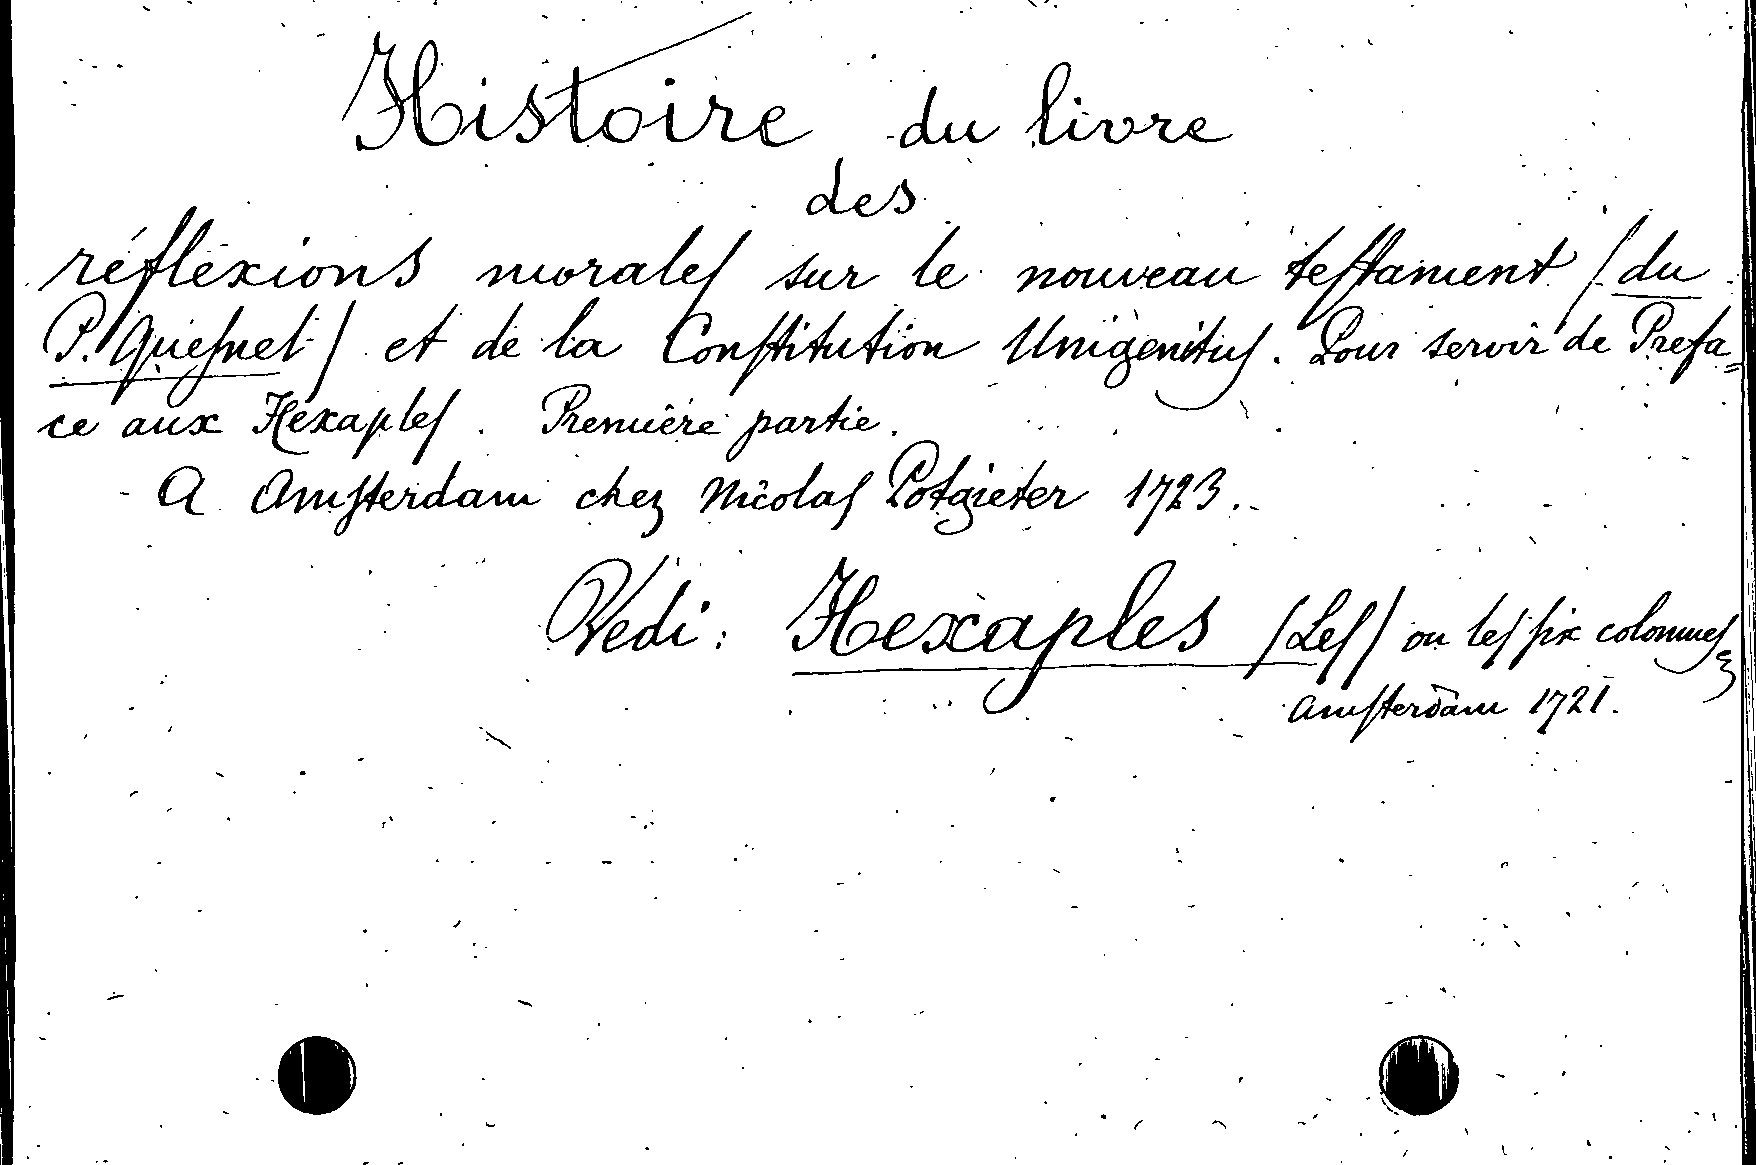 Histoire du livre
des
réflexions morales sur le nouveau testament (du
P. Quesnel) et de la Constitution Unigenitus. Pour servir de Prefa=
ce aux Hexaples. Première partie.
A Amsterdam chez Nicolas Potgieter 1723.
Vedi: Hexaples (Les) ou les six colonnes
Amsterdam 1721.